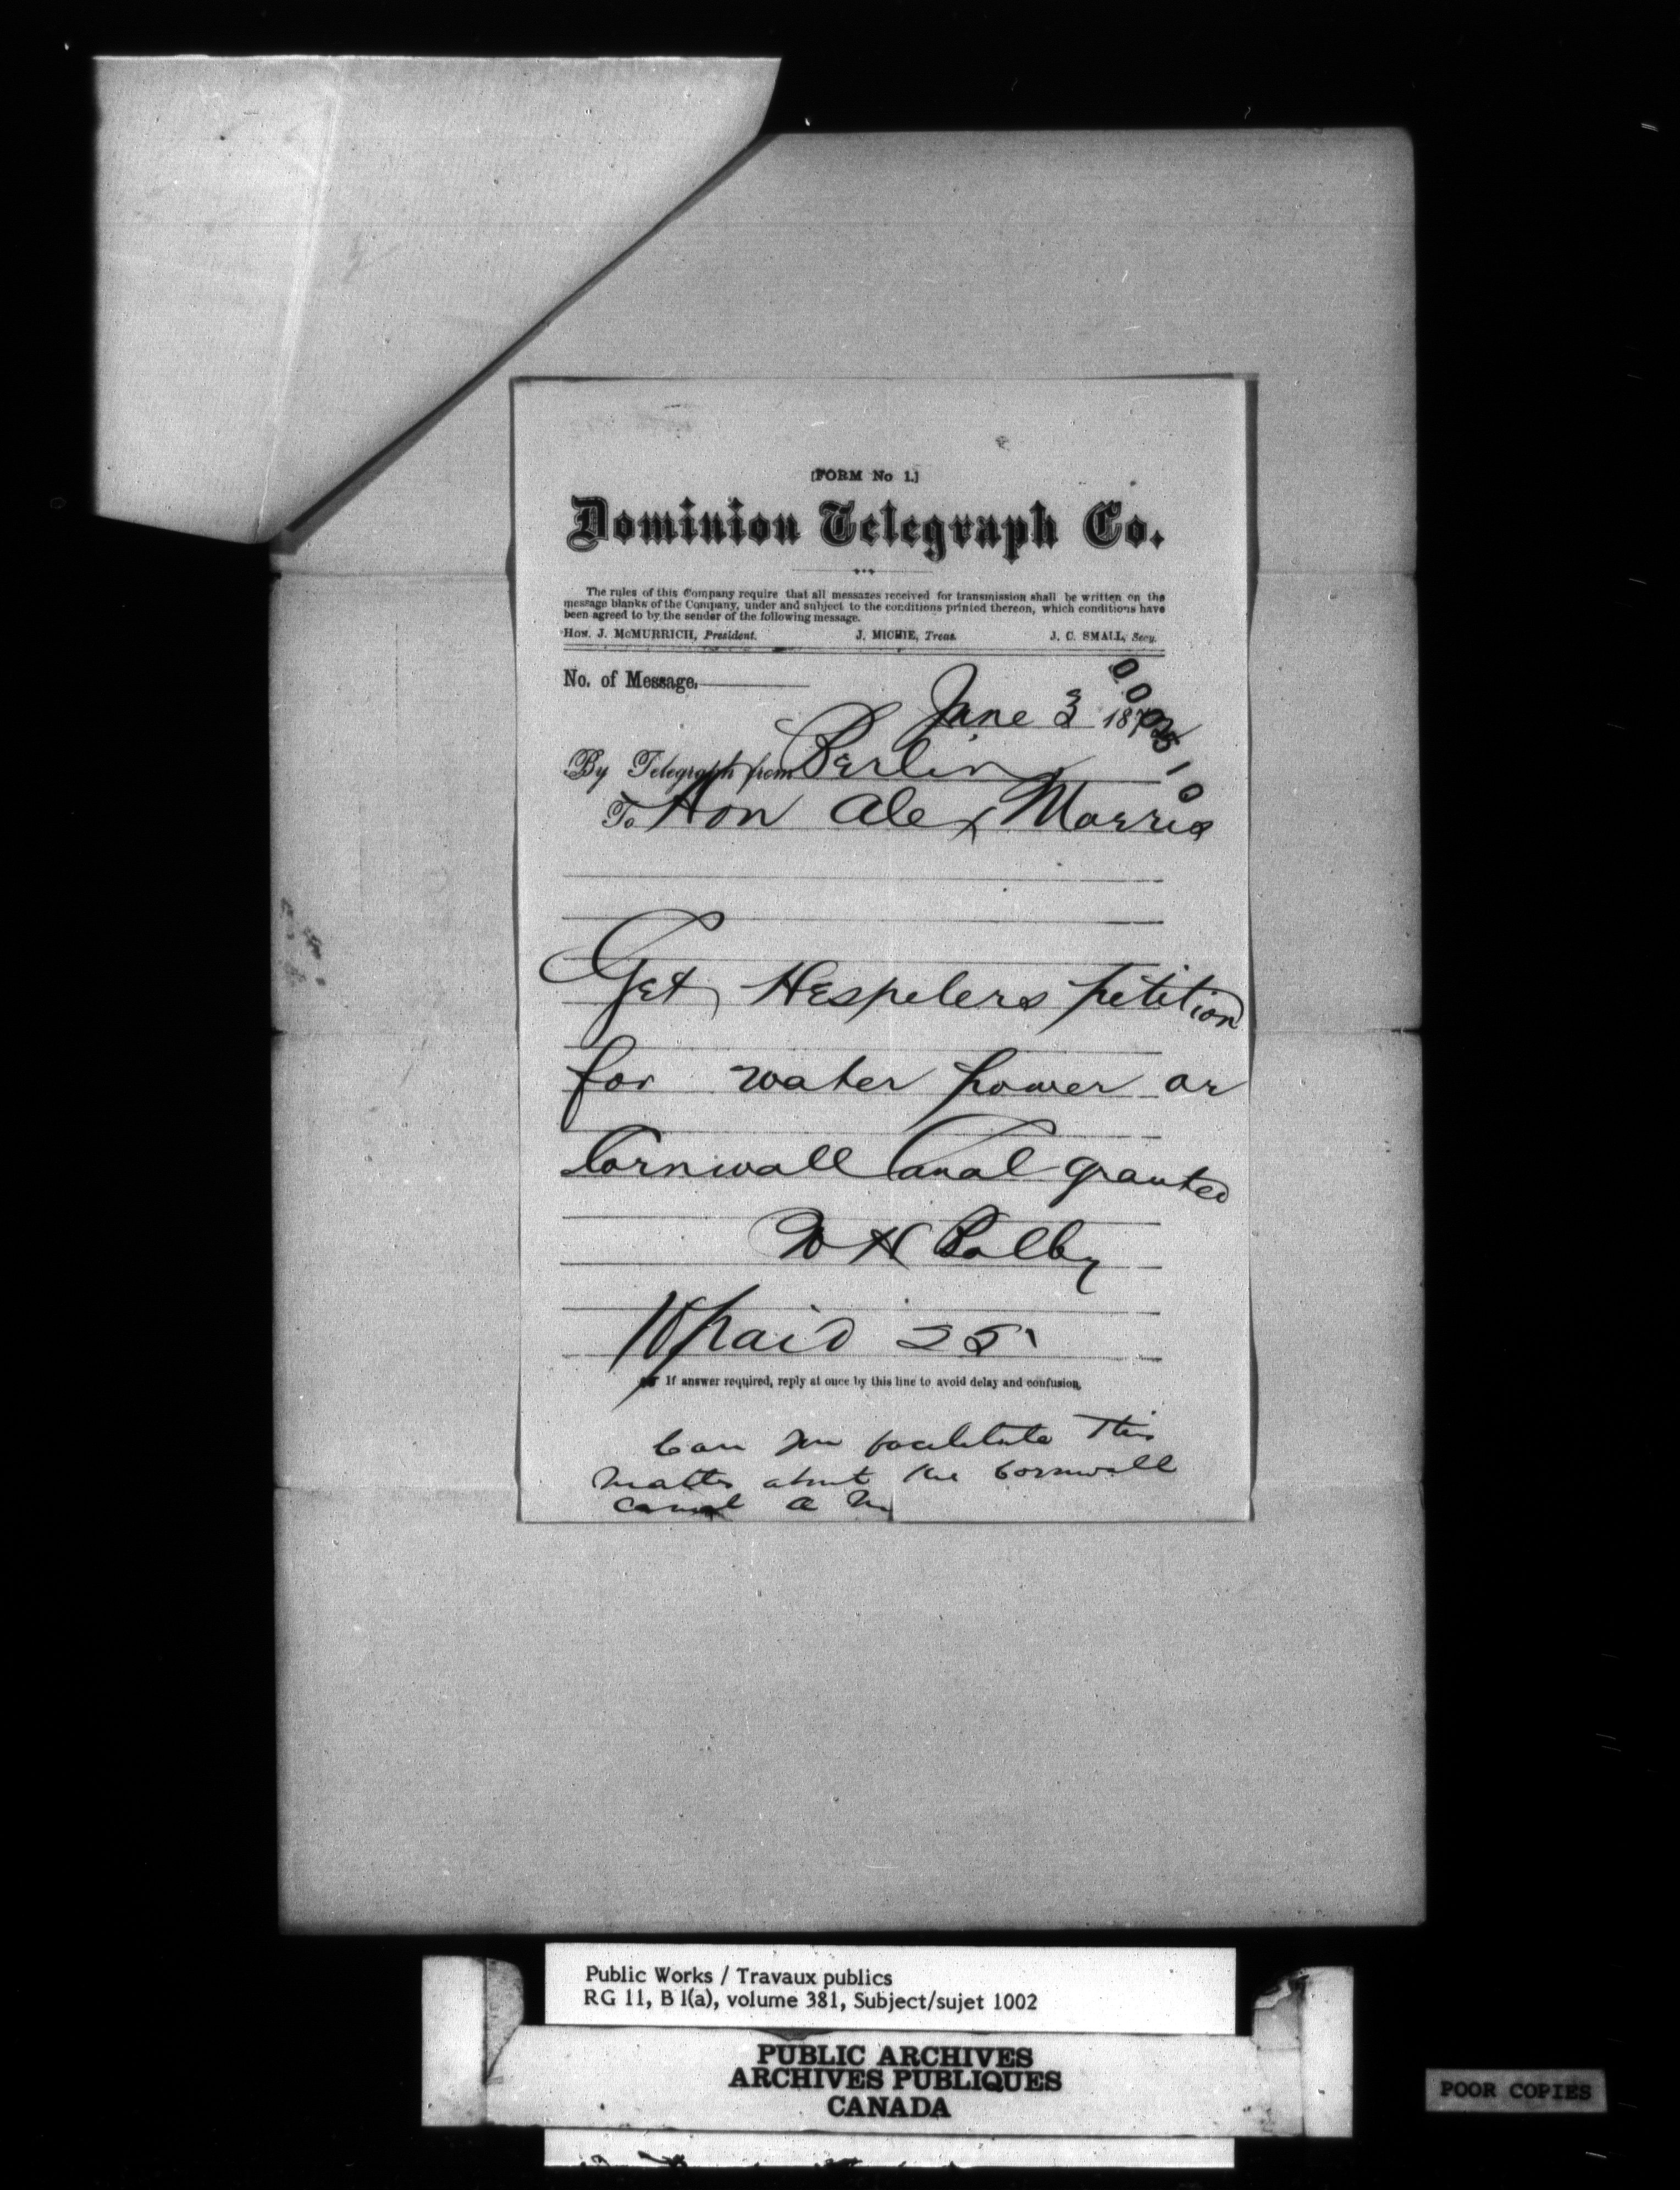 [FORM No 1.]
Dominion Telegraph Co.
The rules of this Company require that all messages received for transmission shall be written on the
message blanks of the Company, under and subject to the conditions printed thereon, which conditions have
been agreed to by the sender of the following message.
HON. J. McMURRICH, President. J. MICHIE, Treas. J. C. SMALL, Secy.
No. of Message.
June 3 187
By Telegraph from Berlin
To Hon Alex Morris
Get Hespelers petition
for water power or
Cornwall Canal granted
W H Bolby
10 paid 25
If answer required, reply at once by this line to avoid delay and confusion.
Can you facilitate this
matter about the Cornwall
Canal A M
Public Works / Travaux publics
RG 11, B 1(a), volume 381, Subject/sujet 1002
PUBLIC ARCHIVES
ARCHIVES PUBLIQUES
CANADA
POOR COPIES